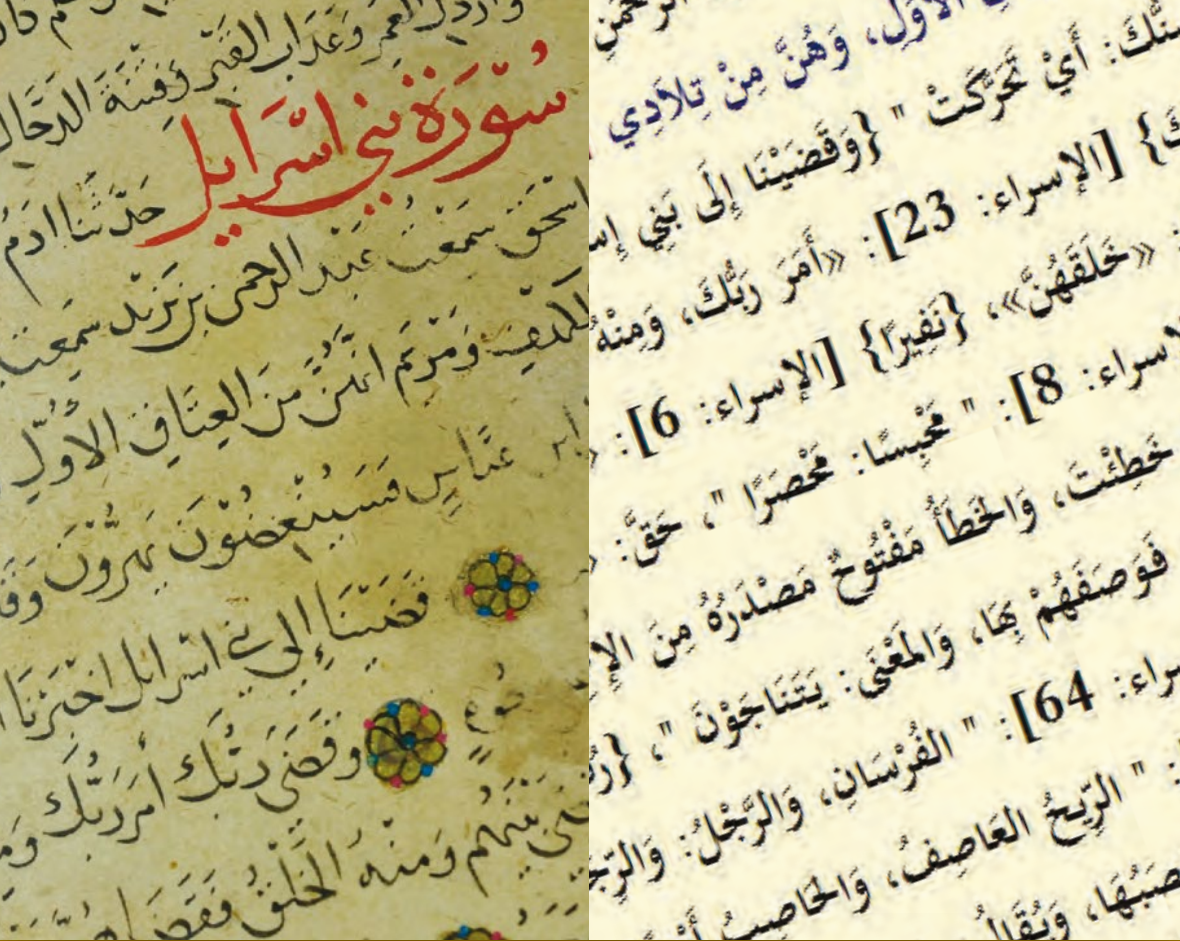 وارذل العمر وَعَذَابِ القَبْرِ وَفِتْنَةِ الدَّجَّالِ
سُوْرَةُ بَنِي اسْرَايِل حَدَّثَنَا ادَمُ
اسْحَقَ سَمِعْتُ عَبْدَ الرحمن بن يَزِيْد سَمِعْتُ
وَمَرْيَمَ انَّهُنَّ مِنَ العِتَاقِ الاُوَلِ
عَبَّاسٍ فَسَيُنْغِضُوْنَ يَهزُّوْنَ
قَضَيْنَا إِلى بني اسْرايل اخْبَرْنَا
وقَضَى رَبُّكَ أَمَرَ رَبُّكَ
بَيْنَهُم وَمنْهُ الخَلْقُ
الأُوَلِ، وَهُنَّ مِنْ تِلاَدِي
أَيْ تَحَرَّكَتْ " {وَقَضَيْنَا إِلَى بَنِي
[الإسراء: 23]: «أَمَرَ رَبُّكَ، وَمِنْهُ
«خَلَقَهُنَّ»، {نَفِيرًا} [الإسراء: 6]:
8]: " مَحْبِسًا: مَحْصَرًا "، حَقَّ:
خَطِئْتَ، وَالخَطَأُ مَفْتُوحٌ مَصْدَرُهُ مِنَ
فَوَصَفَهُمْ بِهَا، وَالمَعْنَى: يَتَنَاجَوْنَ "،
64]: " الفُرْسَانِ، وَالرَّجْلُ:
" الرِّيحُ العَاصِفُ، وَالحَاصِبُ
وَيُقَالُ